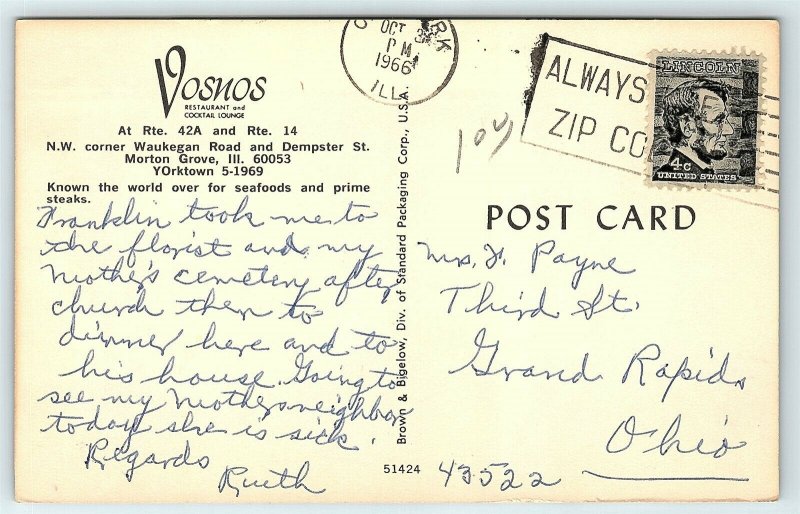 Vosnos
RESTAURANT and
COCKTAIL LOUNGE
At Rte. 42A and Rte. 14
N.W. corner Waukegan Road and Dempster St.
Morton Grove, Ill. 60053
YOrktown 5-1969
Known the world over for seafoods and prime
steaks.
Franklin took me to
the florist and my
Mother's cemetery after
church then to
dinner here and to
his house. Going to
see my Mothers neighbor
today she is sick.
Regards
Rueth
Brown & Bigelow, Div. of Standard Packaging Corp., U.S.A.
51424
RK
OCT
PM
1966
ILL.
ALWAYS
ZIP CO
LINCOLN
4c
UNITED STATES
POST CARD
Mrs. F. Payne
Third St.
Grand Rapids
Ohio
43522